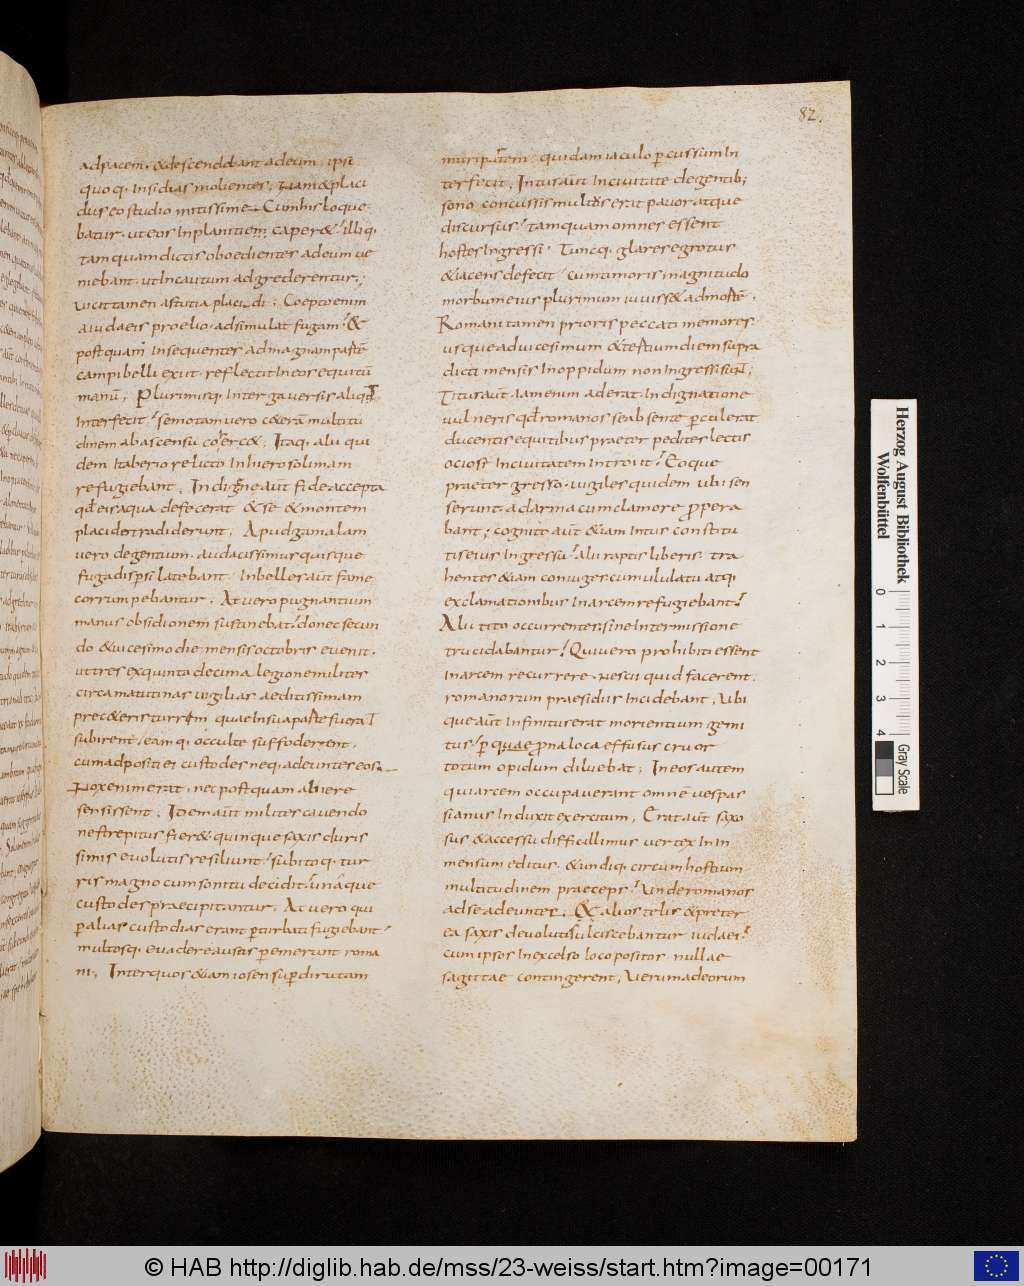 82.
ad pacem. & descendebant ad eum. ipsi
quoq. insidias molientes; nam & placi
dus eo studio mitissime. Cum his loque
batur. ut eos in planitiem caper&. illiq.
tamquam dictis oboedientes ad eum ue
niebant. ut incautum adgrederentur;
uicit tamen astutia placidi; Coepto enim
a iudaeis proelio. adsimulat fugam. &
postquam insequentes ad magnam partē
campi belli exiit. reflectit in eos equitū
manū; Plurimisq. interga uersis aliqđ
interfecit. semotam uero c&erā multitu
dinem ab ascensu coerc&; Itaq. alii qui
dem itaberio relicto in hierosolimam
refugiebant. Indigne aūt fide accepta
qđ eis aqua defecerat & se & montem
placido tradiderunt. Apud gamalam
uero degentium. audacissimus quisque
fuga dispsi latebant. Inbelles aūt fame
corrumpebantur. At uero pugnantium
manus obsidionem sustinebat. donec secun
do & uicesimo die mensis octobris euenit.
ut tres ex quinta decima legione milites
circa matutinas uigilias aeditissimam
prec&eris turrem quae in sua parte fuerat
subirent. eamq. occulte suffoderent.
cum adpositi ei custodes neq. adeuntes eos
nox enim erat. nec postquam abiere
sensissent. Idem aūt milites cauendo
ne strepitus fier& quinque saxis duris
simis euolutis resiliunt. subitoq. tur
ris magno cum sonitu decidit. unaque
custodes praecipitantur. At uero qui
p alias custodias erant pturbati fugiebant.
multosq. euadere ausos pemerunt roma
ni; Inter quos & iam iosen sup dirutam
muri partem quidam iaculo pcussum in
terfecit. Intus aūt in ciuitate degentib;
sono concussis multus erat pauor atque
discursus. tamquam omnes essent
hostes ingressi. Tuncq. glares egrotus
& iacens defecit cum timoris magnitudo
morbum eius plurimum iuuiss& ad mortē.
Romani tamen prioris peccati memores
usque ad uicesimum & tertium diem supra
dicti mensis in oppidum non ingressi sunt;
Titus aūt. iam enim aderat. indignatione
uulneris qđ romanos se absente pculerat
ducentis equitibus praeter pedites lectis
ociose in ciuitatem introiit. Eoque
praetergresso. uigiles quidem ubi sen
serunt. ad arma cum clamore ppera
bant; cognito aūt & iam intus constitu
tis eius ingressu. alii raptis liberis tra
hentes & iam coniuges cum ululatu atq.
exclamationibus in arcem refugiebant.
Alii tito occurrentes. sine intermissione
trucidabantur. Qui uero prohibiti essent
in arcem recurrere. nescii quid facerent.
romanorum praesidiis incidebant. Ubi
que aūt infinitus erat morientium gemi
tus. p quae prona loca effusus cruor
totum opidum diluebat; In eos autem
qui arcem occupauerant omnē uespas
sianus induxit exercitum. Erat aūt saxo
sus & accessu difficillimus uertex in in
mensum editus. & undiq. circum hostium
multitudinem praeceps. Unde romanos
ad se adeuntes. & alios telis & preter
ea saxis deuolutis ulciscebantur iudaei.
cum ipsos in excelso loco positos nullae
sagittae contingerent. Uerum ad eorum
Herzog August Bibliothek
Wolfenbüttel
0 1 2 3 4 Gray Scale
© HAB http://diglib.hab.de/mss/23-weiss/start.htm?image=00171